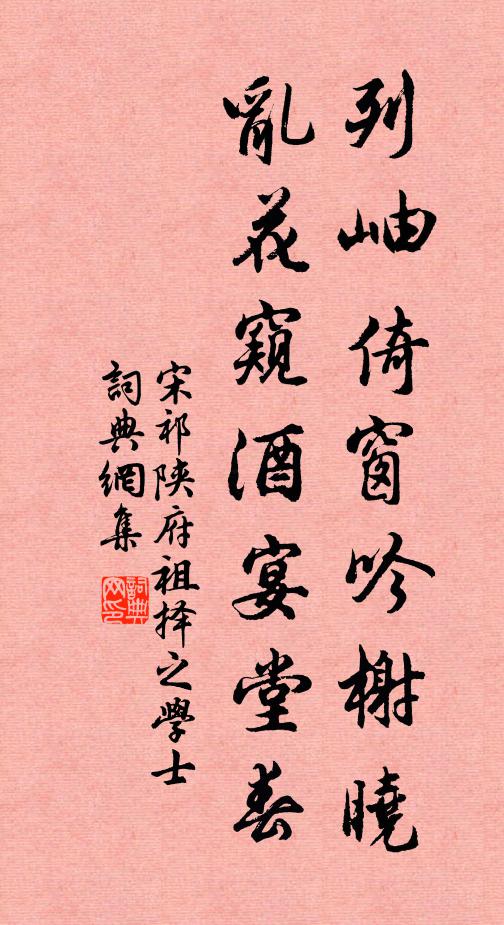 列岫倚窗吟榭曉
亂花窺酒宴堂春
宋祁陝府祖择之學士
詞典網集
詞典网印